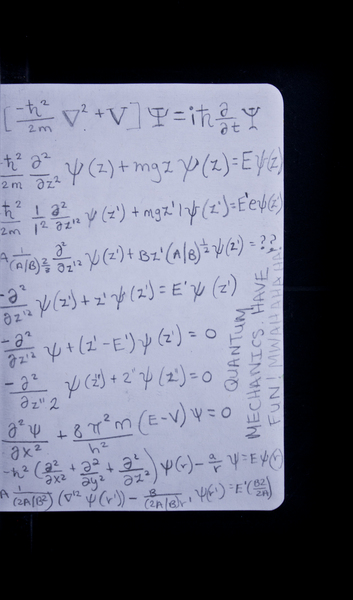 [-ħ²/2m ∇² + V] Ψ = iħ ∂/∂t Ψ
-ħ²/2m ∂²/∂z² ψ(z) + mgz ψ(z) = Eψ(z)
ħ²/2m 1/l² ∂²/∂z'² ψ(z') + mgz'l ψ(z') = E'eψ(z)
A 1/(A/B)^2/3 ∂²/∂z'² ψ(z') + Bz'(A/B)^1/2 ψ(z') = ??
-∂²/∂z'² ψ(z') + z'ψ(z') = E'ψ(z')
-∂²/∂z'² ψ + (z'-E')ψ(z') = 0
-∂²/∂z''2 ψ(z'') + z''ψ(z'') = 0
∂²ψ/∂x² + 8π²m/h² (E-V)ψ = 0
-ħ² (∂²/∂x² + ∂²/∂y² + ∂²/∂z²) ψ(r) - a/r ψ = Eψ(r)
A 1/(2A/B²) (∇'² ψ(r')) - B/(2A/B)r' ψ(r') = E'(B2/2A)
QUANTUM
MECHANICS. HAVE
FUN! MWAHAHAHA!